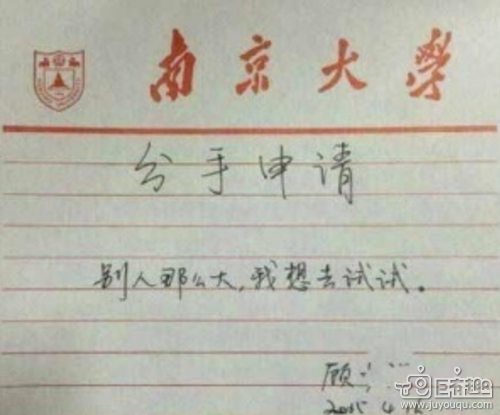 南京大學
分手申请
别人那么大,我想去试试。
顾
2015 4
巨有趣
www.juyouqu.com